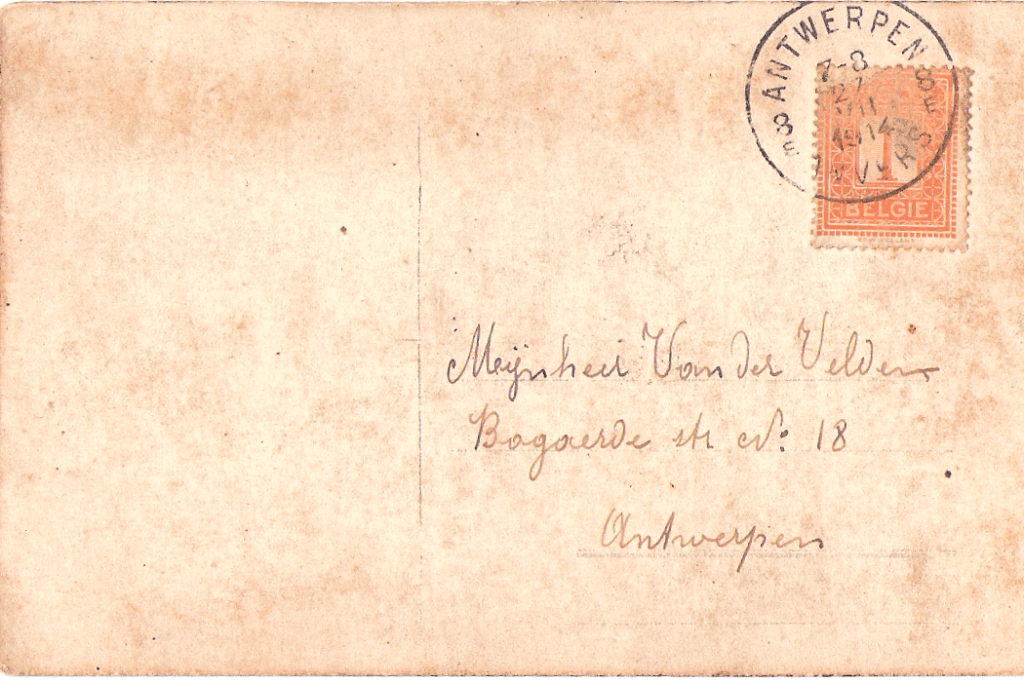 ANTWERPEN
7-8
27
1914
8E
8E
1
BELGIE
Mijnheer Van der Velden
Bogaerde str No: 18
Antwerpen